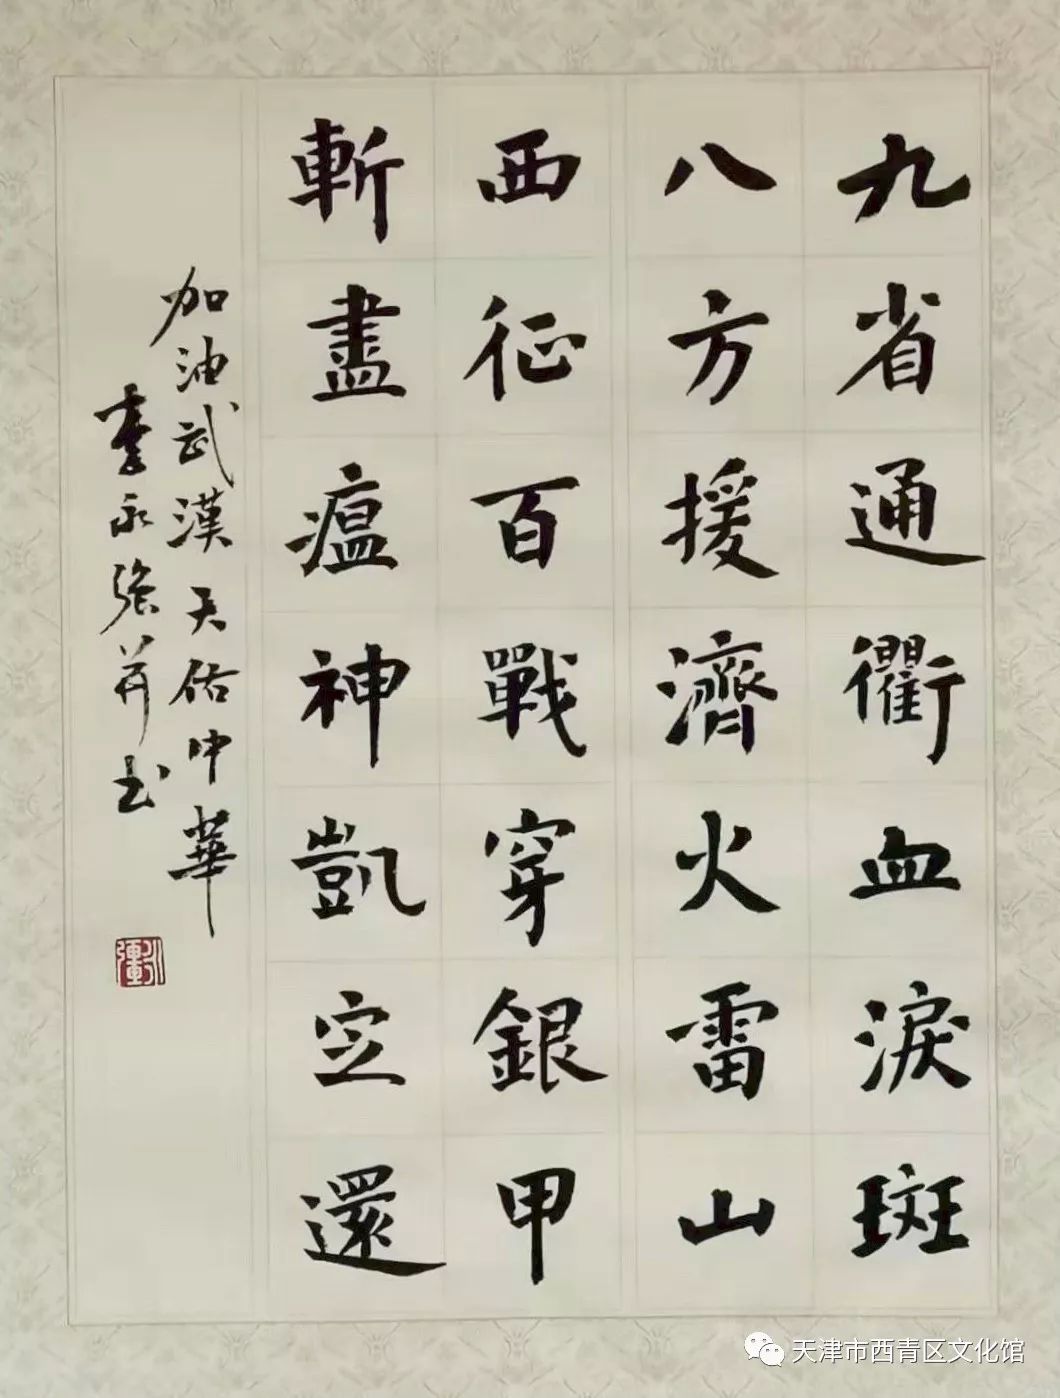 九省通衢血淚斑
八方援濟火雷山
西征百戰穿銀甲
斬盡瘟神凱㝎還
加油武漢天佑中華
李永強并书
天津市西青区文化馆